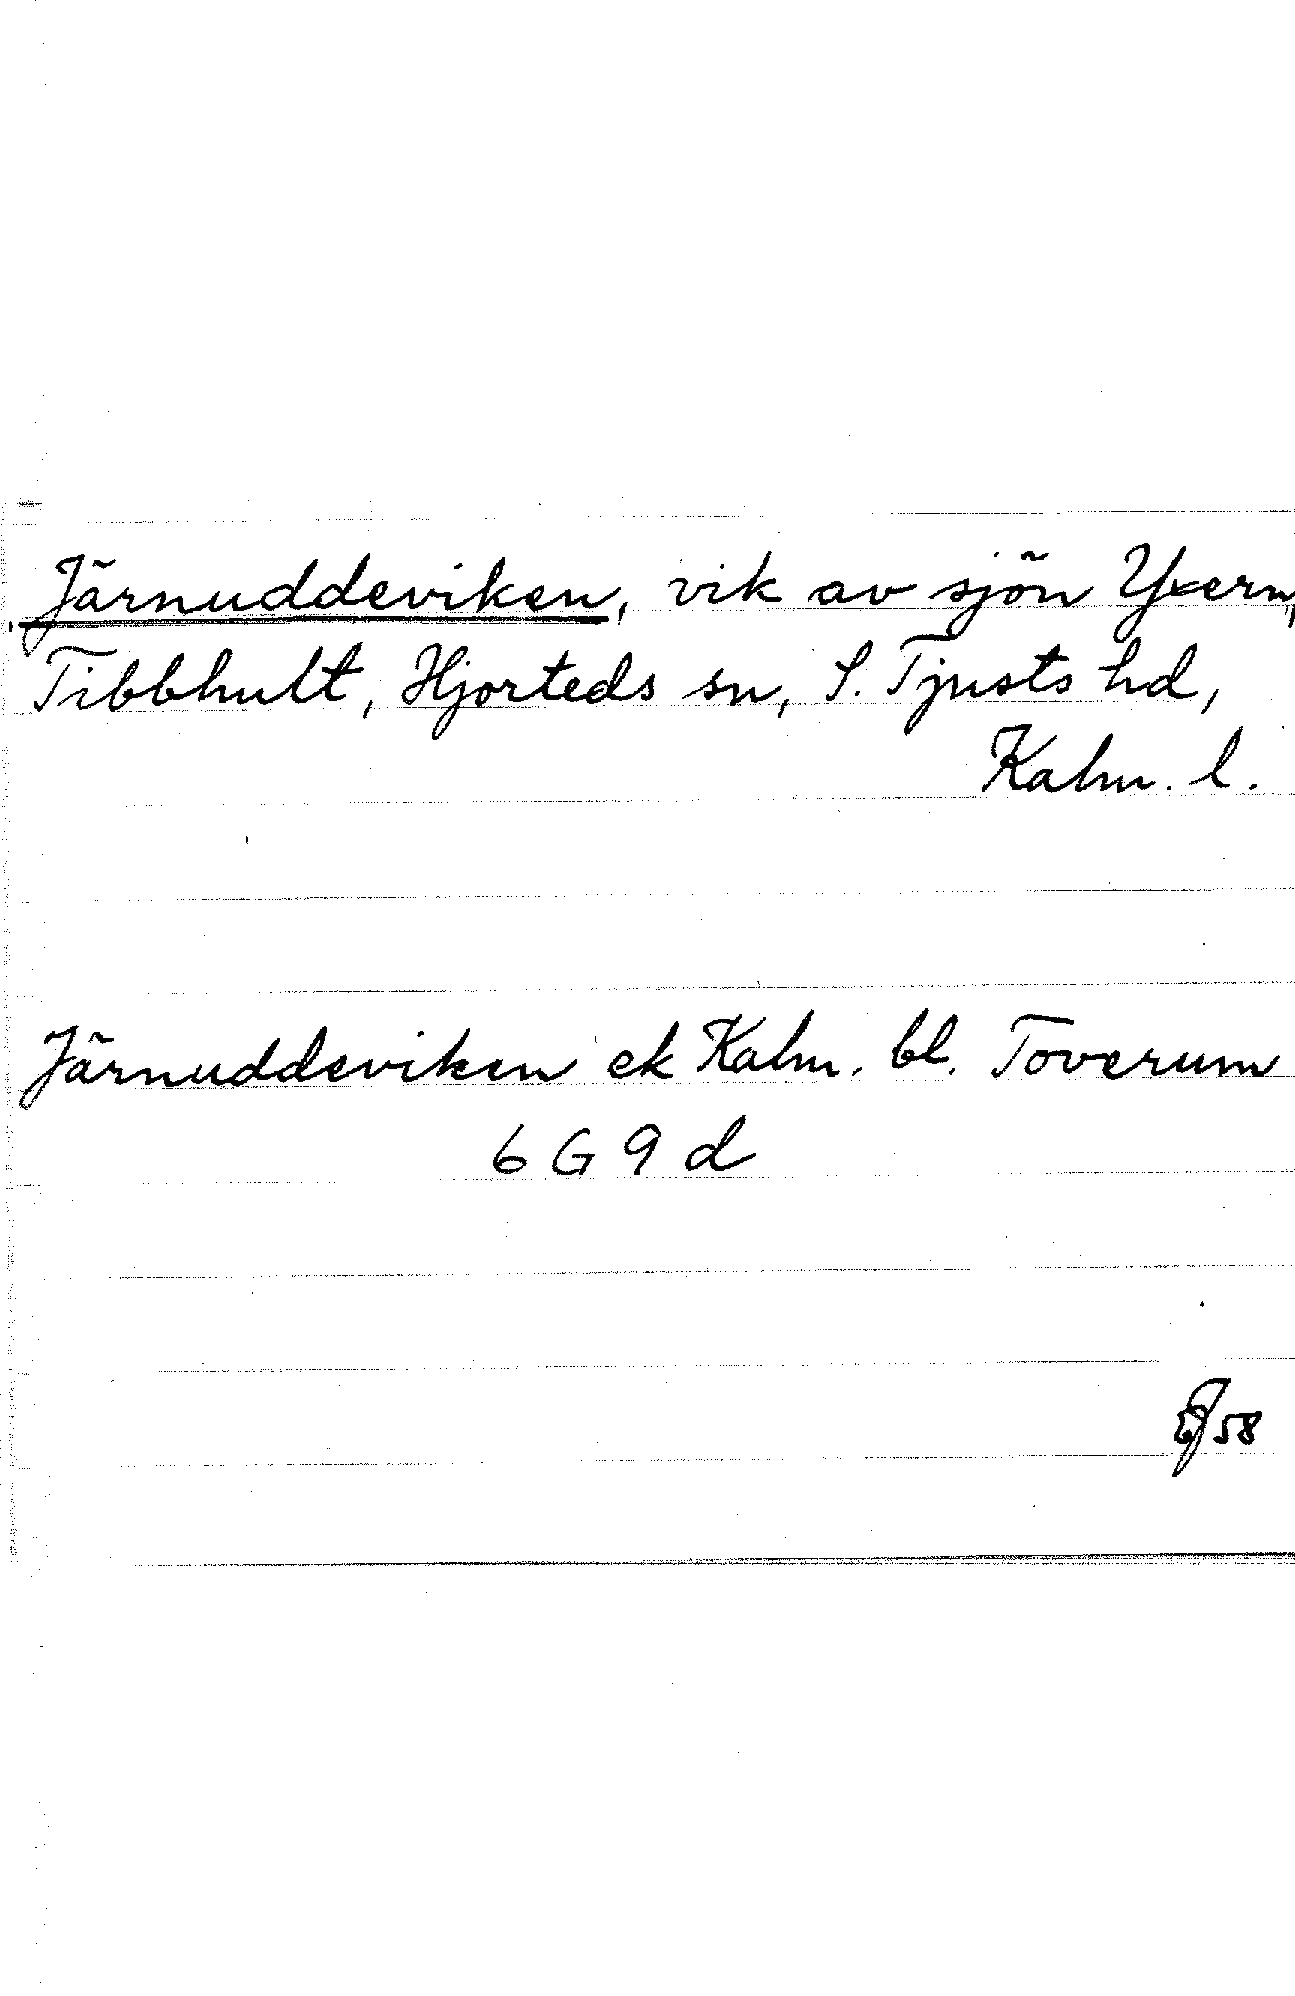 Järnuddeviken, vik av sjön Yxern,
Tibbhult, Hjorteds sn, S. Tjusts hd,
Kalm. l.
Järnuddeviken ek Kalm. bl. Toverum
6 G 9 d
58